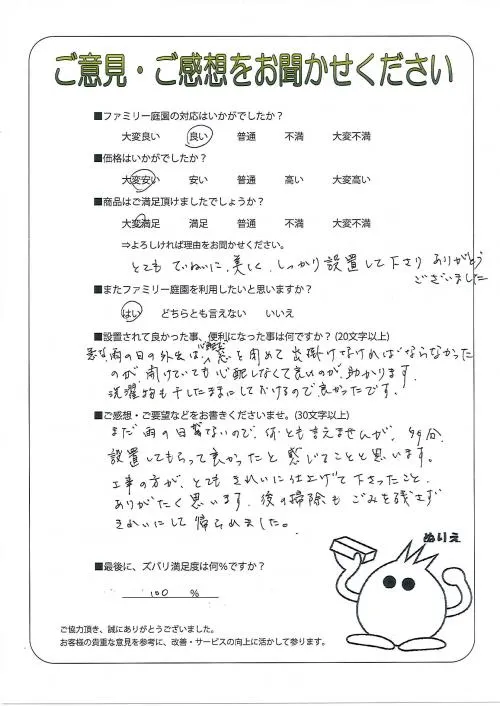 ご意見・ご感想をお聞かせください
■ファミリー庭園の対応はいかがでしたか？
大変良い 良い 普通 不満 大変不満
■価格はいかがでしたか？
大変安い 安い 普通 高い 大変高い
■商品はご満足頂けましたでしょうか？
大変満足 満足 普通 不満 大変不満
⇒よろしければ理由をお聞かせください。
とても ていねいに、美しく、しっかり設置して下さり ありがとう
ございました
■またファミリー庭園を利用したいと思いますか？
はい どちらとも言えない いいえ
■設置されて良かった事、便利になった事は何ですか？(20文字以上)
雨の日の外出は、窓を閉めて出掛けなければならなかった
のが、開けていても心配しなくて良いのが、助かります。
洗濯物も干したままにしてだけるので良かったです。
■ご感想・ご要望などをお書きくださいませ。(30文字以上)
まだ雨の日がないので、何とも言えませんが、多分、
設置してもらって良かったと感じることと思います。
工事の方が、とてもきれいに仕上げて下さったこと、
ありがたく思います。後の掃除も ごみを残さず
きれいにして帰られました。
■最後に、ズバリ満足度は何%ですか？
100 %
ぬりえ
ご協力頂き、誠にありがとうございました。
お客様の貴重な意見を参考に、改善・サービスの向上に活かして参ります。